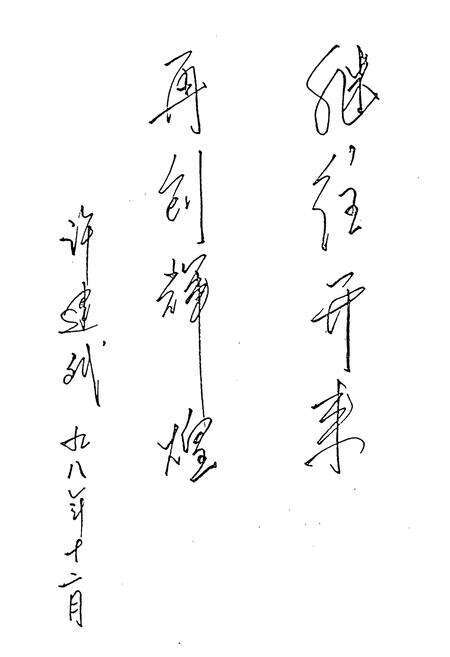 继往开来
再创辉煌
许建斌 九八年十二月